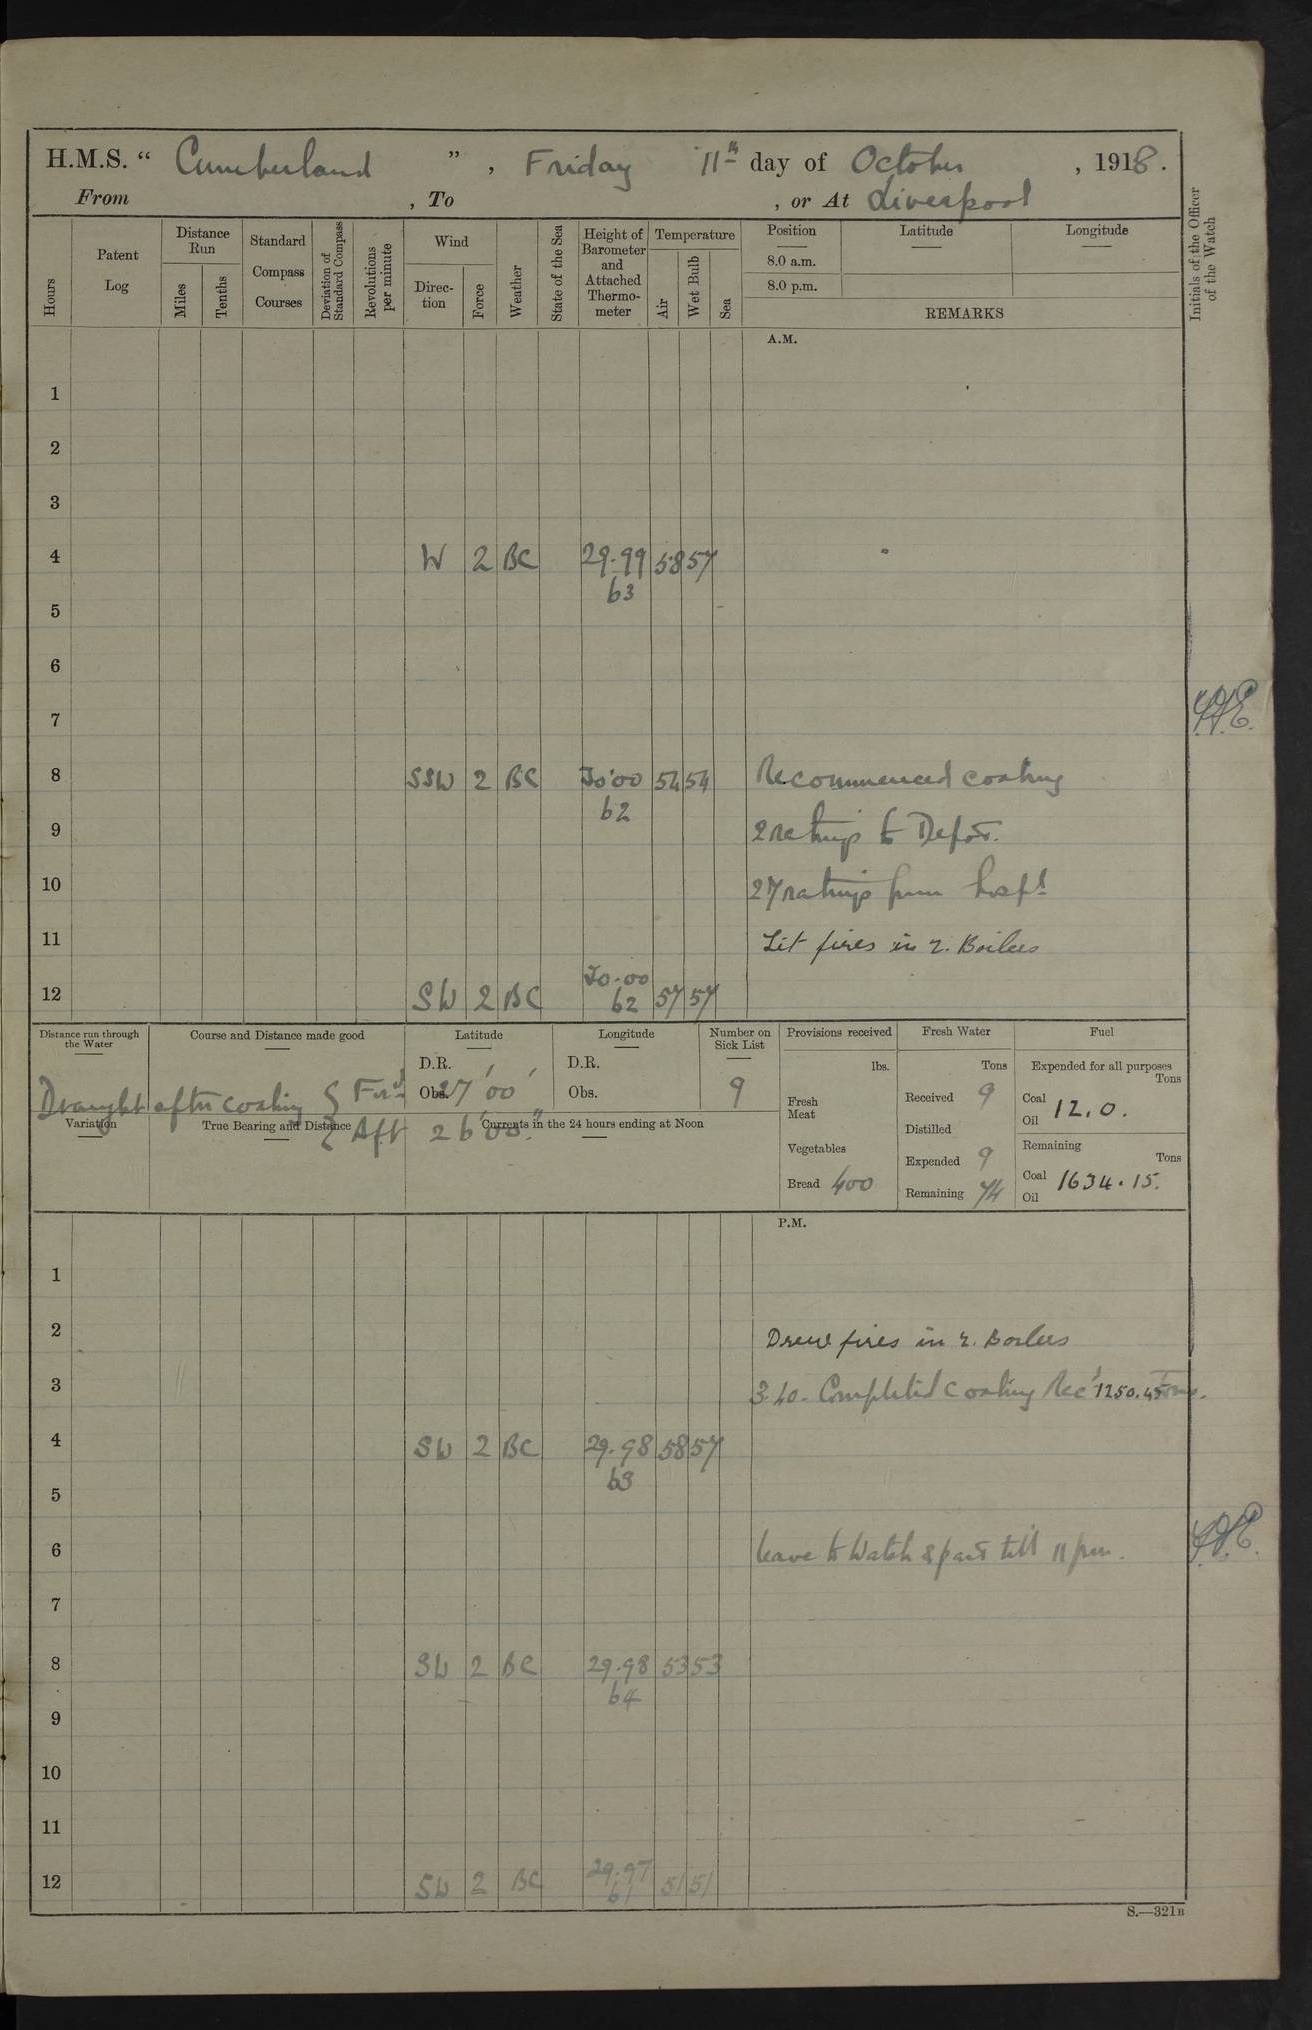 H.M.S. “ Cumberland ”, Friday 11th day of October, 1918.
From , To , or At Liverpool
Hours
Patent Log
Distance Run
Miles
Tenths
Standard Compass Courses
Deviation of Standard Compass
Revolutions per minute
Wind
Direction
Force
Weather
State of the Sea
Height of Barometer and Attached Thermometer
Temperature
Air
Wet Bulb
Sea
Position Latitude Longitude
8.0 a.m.
8.0 p.m.
REMARKS
Initials of the Officer of the Watch
A.M.
1
2
3
4 W 2 BC 29.99 58 57
63
5
6
7
8 SSW 2 BC 30.00 54 54 Recommenced coaling
62
9 2 ratings to Depot.
10 27 ratings from Hospl
11 Lit fires in 2. Boilers
12 SW 2 BC 30.00 57 57
62
Distance run through the Water
Course and Distance made good
Latitude
D.R.
Obs.
Longitude
D.R.
Obs.
Number on Sick List
9
Draught after coaling { Ford 27' 00"
{ Aft 26' 00"
Variation
True Bearing and Distance
Currents in the 24 hours ending at Noon
Provisions received
lbs.
Fresh Meat
Vegetables
Bread 400
Fresh Water
Tons
Received 9
Distilled
Expended 9
Remaining 74
Fuel
Expended for all purposes
Tons
Coal 12.0.
Oil
Remaining
Tons
Coal 1634.15.
Oil
P.M.
1
2 Drew fires in 2. Boilers
3 3.40. Completed coaling Recd 1250.45 Tons.
4 SW 2 BC 29.98 58 57
63
5
6 leave to Watch & part till 11 pm.
7
8 SW 2 BC 29.98 53 53
64
9
10
11
12 SW 2 BC 29.97 51 51
61
S.—321B